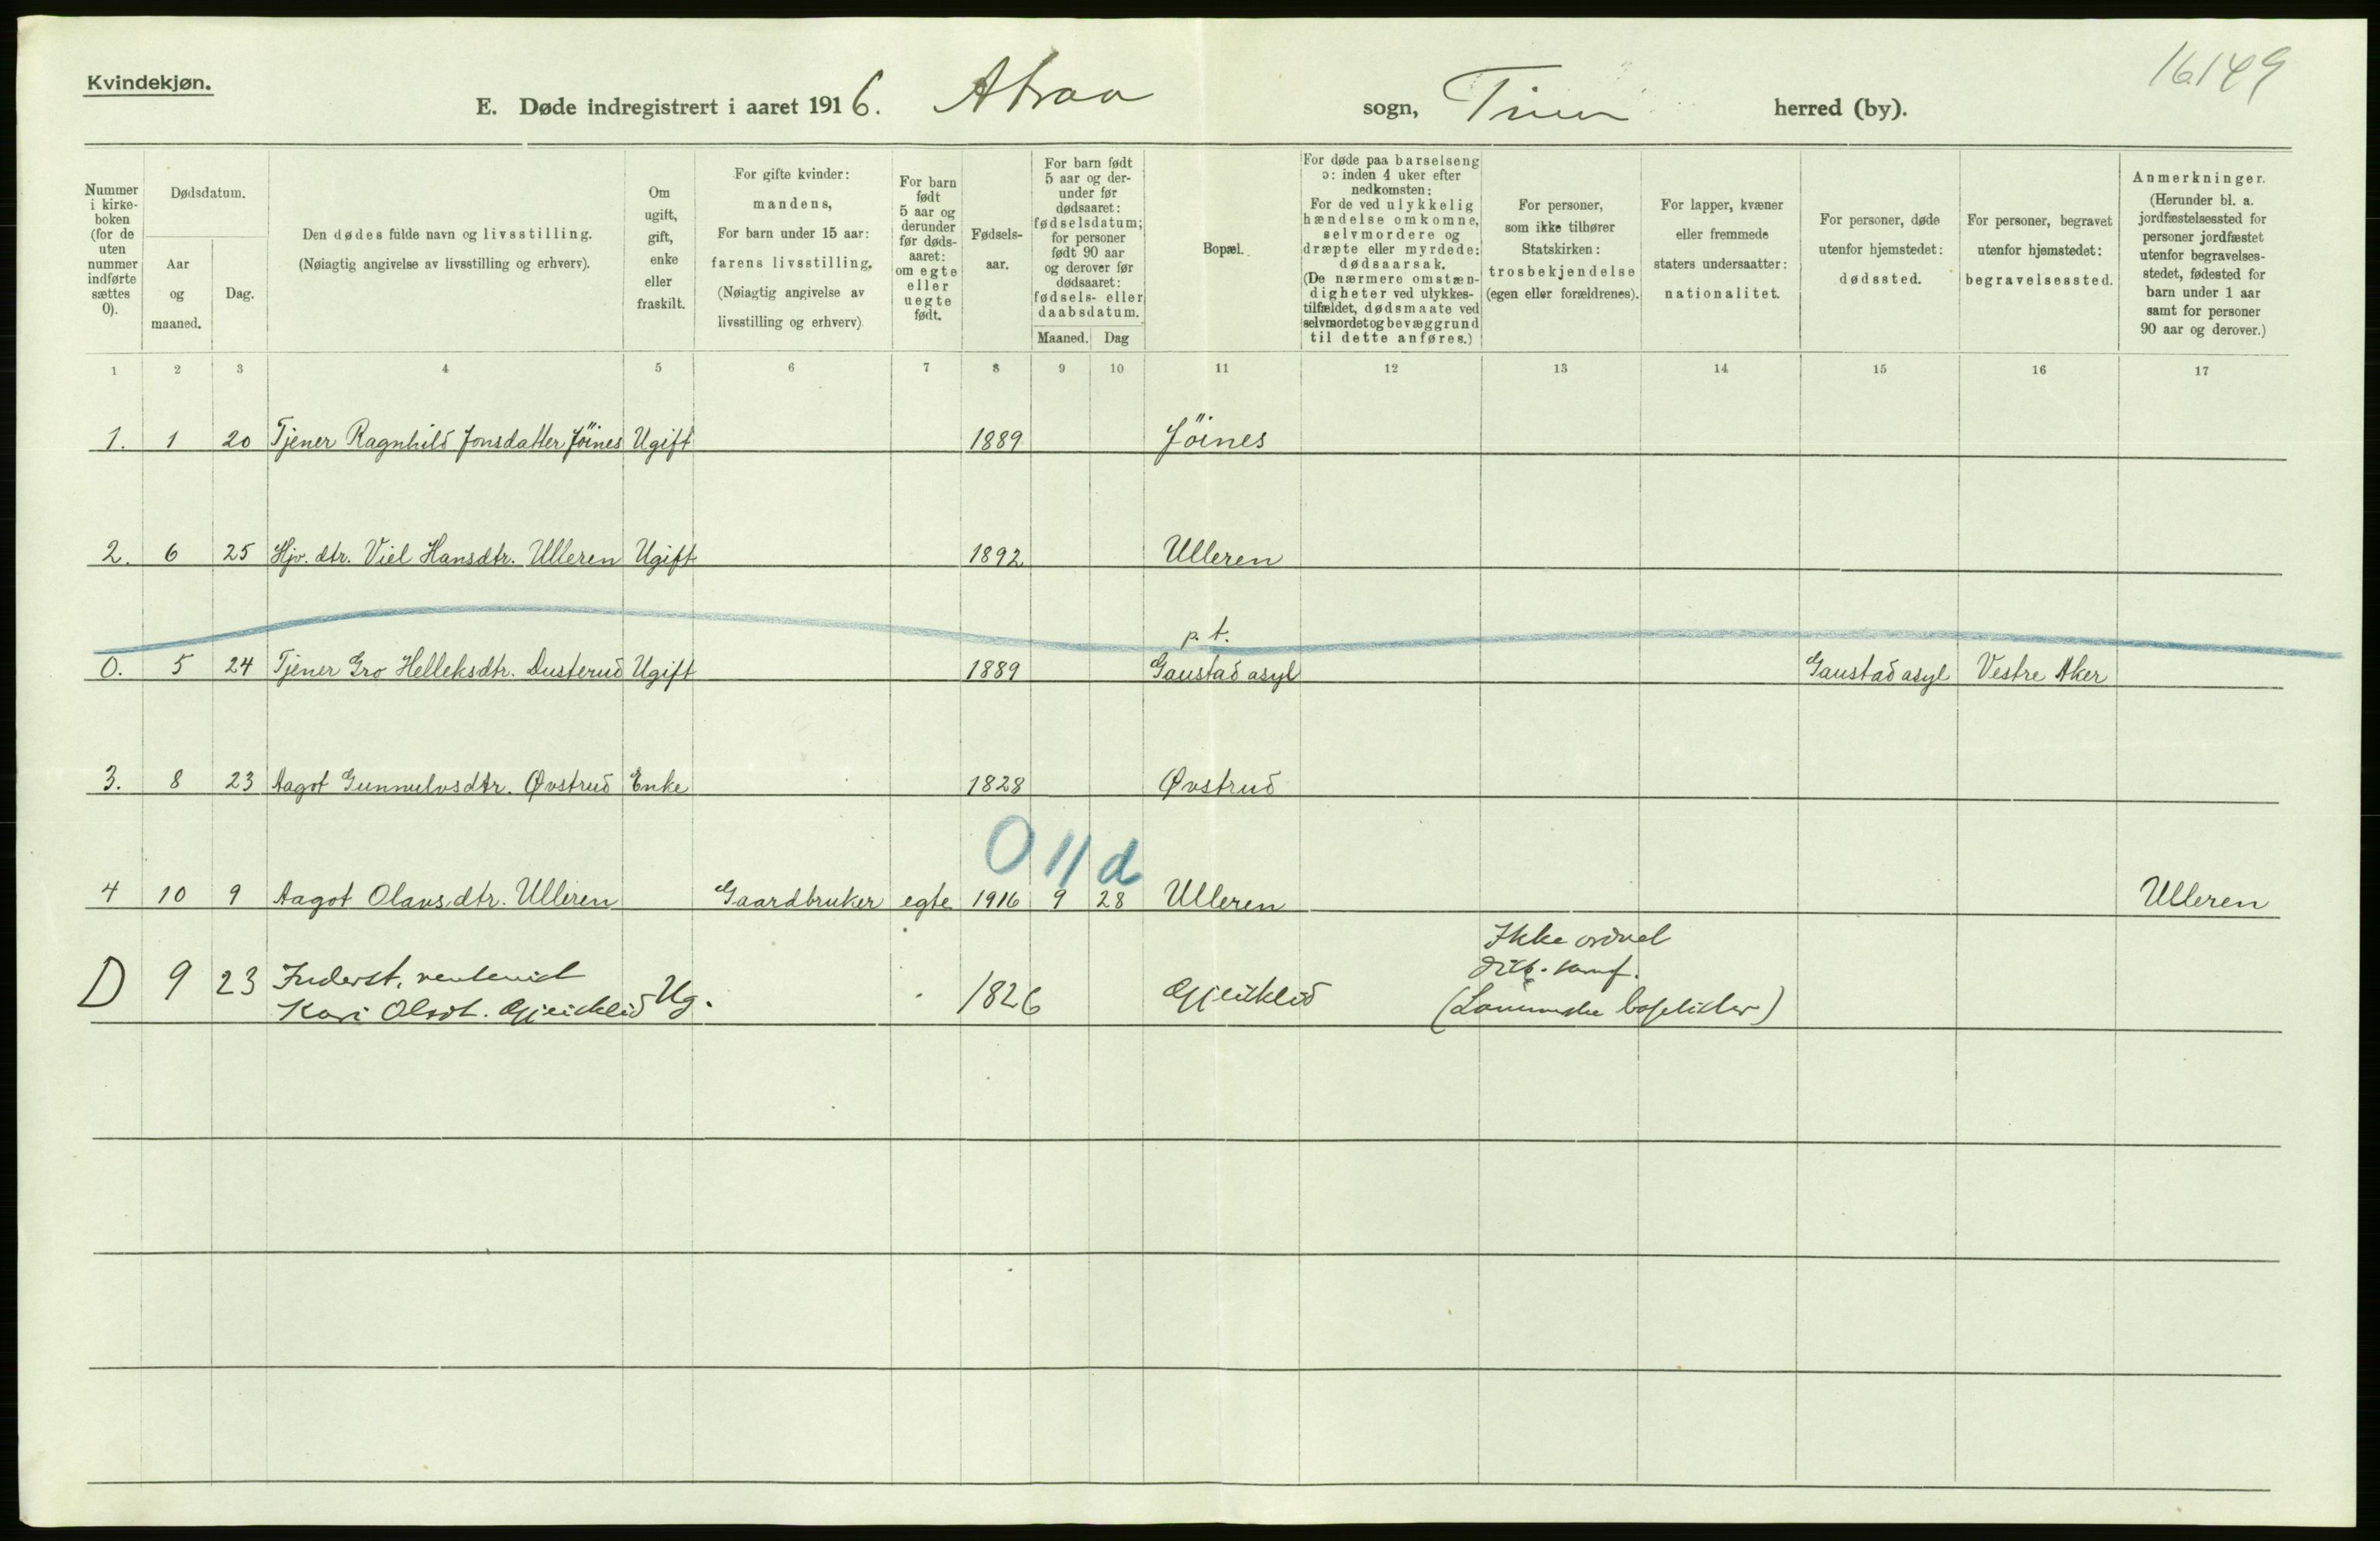 Kvindekjøn.
16149
E. Døde indregistrert i aaret 1916. Atraa sogn, Tinn herred (by).
Nummer i kirke-boken (for de uten nummer indførte sættes 0).
Dødsdatum.
Aar og maaned.
Dag.
Den dødes fulde navn og livsstilling.
(Nøiagtig angivelse av livsstilling og erhverv).
Om ugift, gift, enke eller fraskilt.
For gifte kvinder: mandens,
For barn under 15 aar: farens livsstilling.
(Nøiagtig angivelse av livsstilling og erhverv)
For barn født 5 aar og derunder før døds-aaret: om egte eller uegte født.
Fødsels-aar.
For barn født 5 aar og der-under før dødsaaret: fødselsdatum; for personer født 90 aar og derover før dødsaaret: fødsels- eller daabsdatum.
Maaned. Dag
Bopæl.
For døde paa barselseng ɔ: inden 4 uker efter nedkomsten:
For de ved ulykkelig hændelse omkomne, selvmordere og dræpte eller myrdede: dødsaarsak.
(De nærmere omstæn-digheter ved ulykkes-tilfældet, dødsmaate ved selvmordet og bevæggrund til dette anføres.)
For personer, som ikke tilhører Statskirken: trosbekjendelse (egen eller forældrenes).
For lapper, kvæner eller fremmede staters undersaatter: nationalitet.
For personer, døde utenfor hjemstedet: dødssted.
For personer, begravet utenfor hjemstedet: begravelsessted.
Anmerkninger.
(Herunder bl. a. jordfæstelsessted for personer jordfæstet utenfor begravelses-stedet, fødested for barn under 1 aar samt for personer 90 aar og derover.)
1 2 3 4 5 6 7 8 9 10 11 12 13 14 15 16 17
1. 1 20 Tjener Ragnhild Jonsdatter Jöines Ugift 1889 Jöines
2. 6 25 Hjv. dtr. Viel Hansdtr. Ulleren Ugift 1892 Ulleren
p. t.
0. 5 24 Tjener Gro Helleksdtr. Dusterud Ugift 1889 Gaustad asyl Gaustad asyl Vestre Aker
3. 8 23 Aagot Gunnulvsdtr. Øvstrud Enke 1828 Øvstrud
0 11 d
4 10 9 Aagot Olavsdtr. Ulleren Gaardbruker egte 1916 9 28 Ulleren Ulleren
Ikke
D 9 23 Inderst,
Kari Olsdt. Ug. 1826